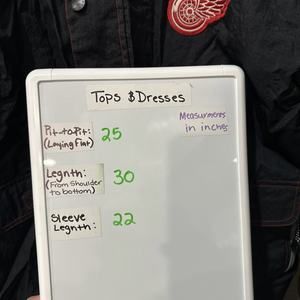 Tops $ Dresses
Measurments
in inches
Pit-to-Pit: 25
(Laying Flat)
Legnth: 30
(From Shoulder
to bottom)
Sleeve 22
Legnth: